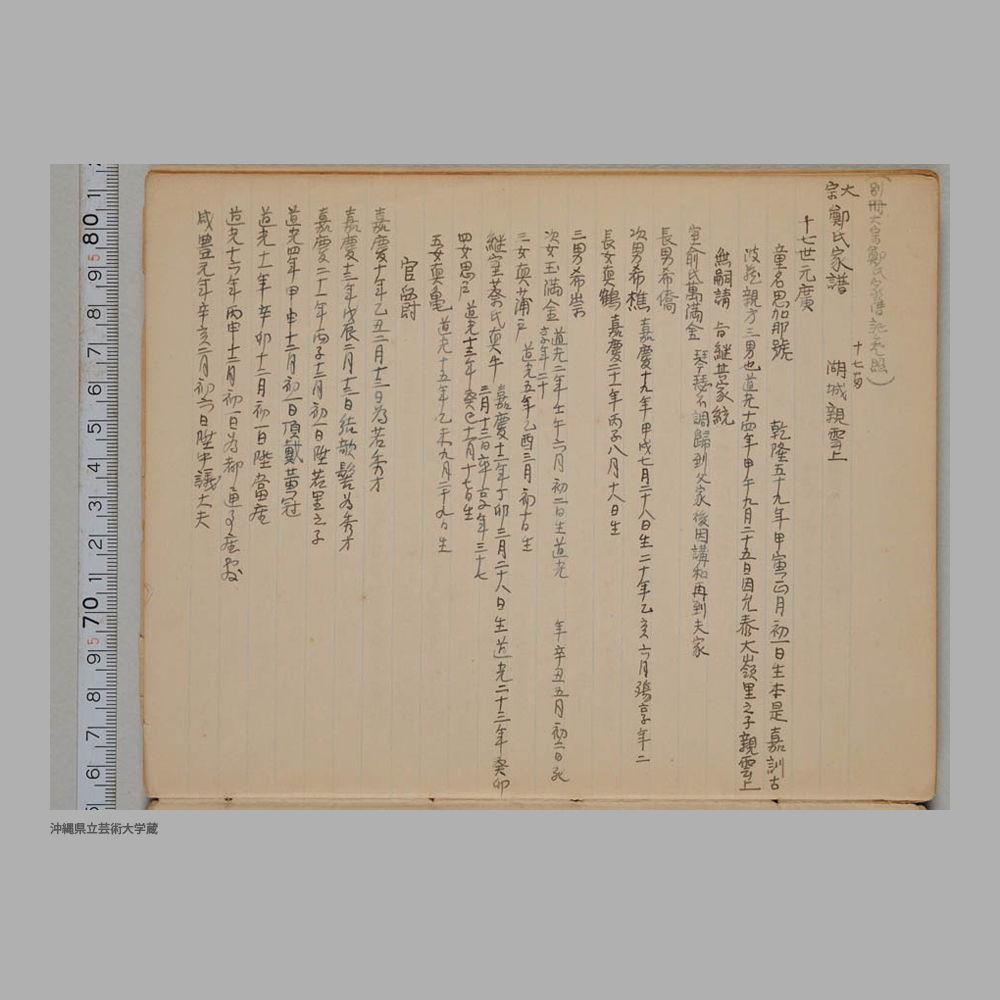 (別冊大宗鄭氏家譜記参照)
大宗 鄭氏家譜 十七世 湖城親雲上
十七世元廣
童名思加那號 乾隆五十九年甲寅正月初一日生本是嘉訓古
波蔵親方三男也道光十四年甲午九月二十五日因允泰大嶺里之子親雲上
無嗣請 旨継其家統
室俞氏萬満金 琴瑟不調歸到父家後因講和再到夫家
長男希僑
次男希樵 嘉慶十九年甲戌七月二十八日生二十年乙亥六月殤享年二
長女真鶴 嘉慶二十一年丙子八月十八日生
三男希崇
次女玉満金 道光二年壬午六月初二日生道光 年辛丑五月初六日死
享年二十
三女真蒲戸 道光五年乙酉三月初十日生
継室蔡氏真牛 嘉慶十二年丁卯三月二十八日生道光二十三年癸卯
三月十三日卒享年三十七
四女思戸 道光十三年癸巳六月十七日生
五女真亀 道光十五年乙未九月二十九日生
官爵
嘉慶十年乙丑二月十三日為若秀才
嘉慶十三年戊辰二月十三日結欹髻為秀才
嘉慶二十一年丙子十二月初一日陞若里之子
道光四年甲申十二月初一日頂戴黄冠
道光十一年辛卯十二月初一日陞當座
道光十六年丙申十二月初一日為都通事座敷
咸豊元年辛亥二月初六日陞中議大夫
80
70
沖縄県立芸術大学蔵